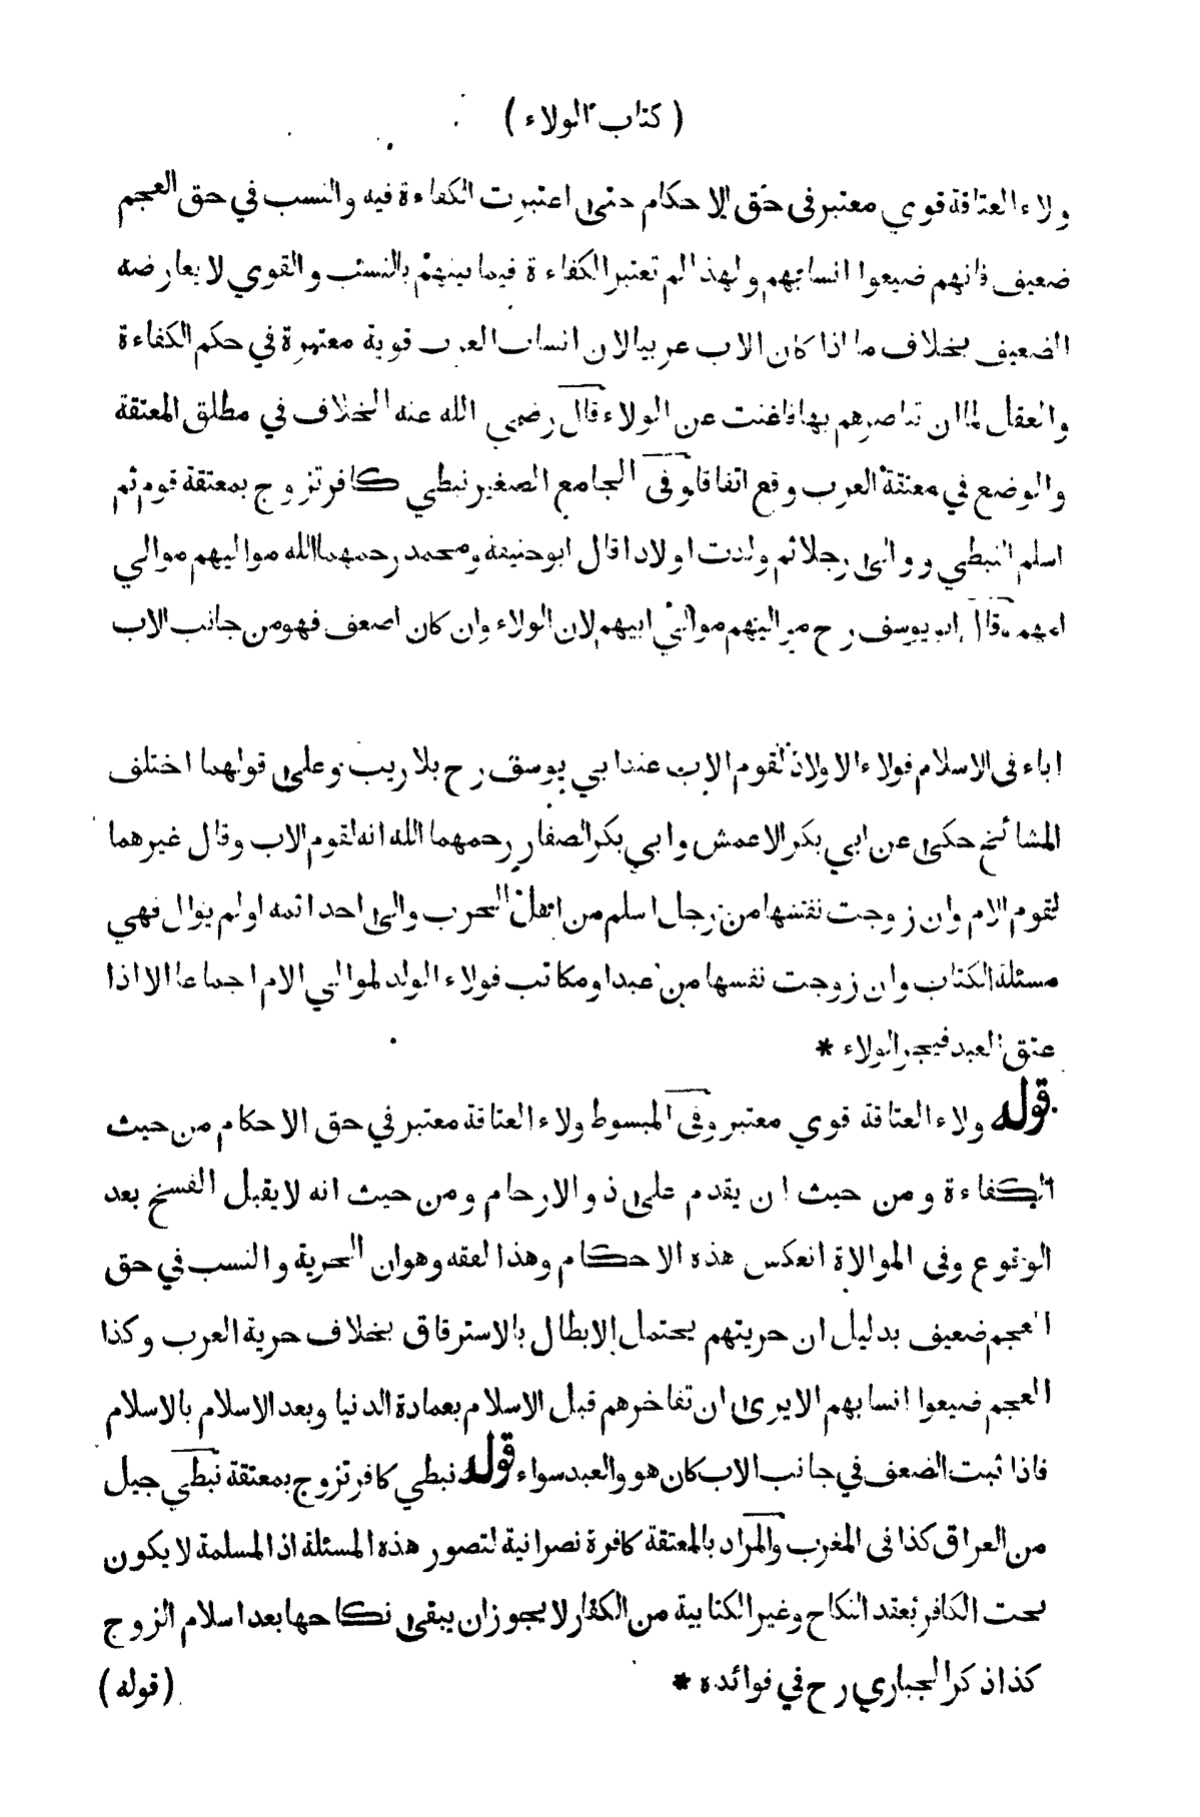 ( كتاب الولاء )
ولاء العتاقة قوي معتبر في حق الاحكام حتى اعتبرت الكفاءة فيه والنسب في حق العجم
ضعيف فانهم ضيعوا انسابهم ولهذا لم تعتبر الكفاءة فيما بينهم بالنسب والقوي لا يعارضه
الضعيف بخلاف ما اذا كان الاب عربيا لان انساب العرب قوية معتبرة في حكم الكفاءة
والعقل لما ان تناصرهم بها فاغنت عن الولاء قال رضي الله عنه الخلاف في مطلق المعتقة
والوضع في معتقة العرب وقع اتفاقا وفى الجامع الصغير نبطي كافر تزوج بمعتقة قوم ثم
اسلم النبطي ووالى رجلا ثم ولدت اولادا قال ابو حنيفة ومحمد رحمهما الله مواليهم موالي
امهم وقال ابو يوسف رح مواليهم موالي ابيهم لان الولاء وان كان اضعف فهو من جانب الاب
اباء فى الاسلام فولاء الاولاد لقوم الاب عند ابي يوسف رح بلا ريب وعلى قولهما اختلف
المشائخ حكى عن ابي بكر الاعمش وابي بكر الصفار رحمهما الله انه لقوم الاب وقال غيرهما
لقوم الام وان زوجت نفسها من رجل اسلم من اهل الحرب والى احدا ثمه او لم يوال فهي
مسئلة الكتاب وان زوجت نفسها من عبد او مكاتب فولاء الولد لموالي الام اجماعا الا اذا
عتق العبد فيجر الولاء *
قوله ولاء العتاقة قوي معتبر وفى المبسوط ولاء العتاقة معتبر في حق الاحكام من حيث
الكفاءة ومن حيث ان يقدم على ذو الارحام ومن حيث انه لا يقبل الفسخ بعد
الوقوع وفى الموالاة انعكس هذه الاحكام وهذا لفقه وهو ان الحرية والنسب في حق
العجم ضعيف بدليل ان حريتهم يحتمل الابطال بالاسترقاق بخلاف حرية العرب وكذا
العجم ضيعوا انسابهم الا يرى ان تفاخرهم قبل الاسلام بعمارة الدنيا وبعد الاسلام بالاسلام
فاذا ثبت الضعف في جانب الاب كان هو والعبد سواء قوله نبطي كافر تزوج بمعتقة نبطي جيل
من العراق كذا فى المغرب والمراد بالمعتقة كافرة نصرانية لتصور هذه المسئلة اذ المسلمة لا يكون
تحت الكافر بعقد النكاح وغير الكتابية من الكفار لا يجوز ان يبقى نكاحها بعد اسلام الزوج
كذا ذكر الجباري رح في فوائده *
( قوله )